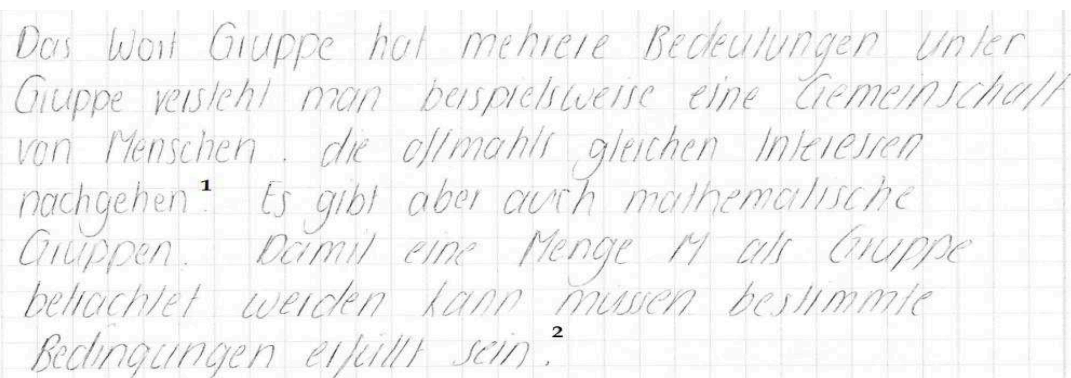 Das Wort Gruppe hat mehrere Bedeutungen unter
Gruppe versteht man beispielsweise eine Gemeinschaft
von Menschen. die oftmahls gleichen Interessen
nachgehen.¹ Es gibt aber auch mathematische
Gruppen. Damit eine Menge M als Gruppe
betrachtet werden kann müssen bestimmte
Bedingungen erfüllt sein.²